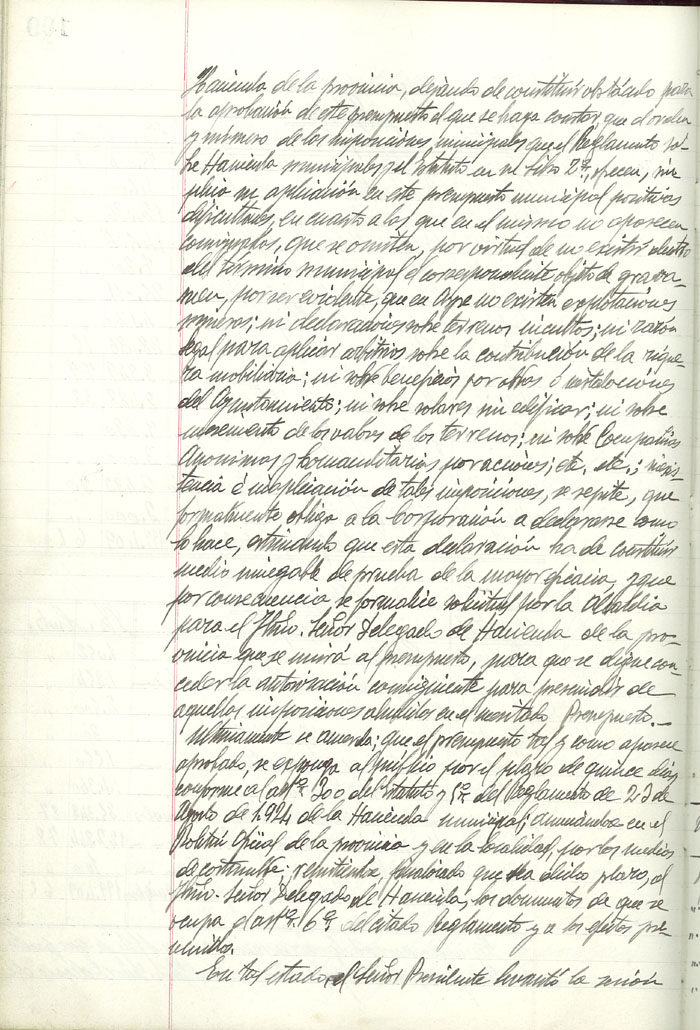 Hacienda de la provincia, dejando de constituir obstáculo para
la aprobación de este presupuesto el que se haga constar, que el orden
y número de las imposiciones municipales que el Reglamento so-
bre Hacienda municipales y el Estatuto en su Libro 2º, ofrecen, im-
plica su aplicación en este presupuesto municipal positivas
dificultades, en cuanto a las que en el mismo no aparecen
consignadas, que se omiten, por virtud de no existir dentro
del término municipal el correspondiente objeto de grava-
men, por ser evidente, que en Aspe no existen explotaciones
mineras; ni declaraciones sobre terrenos incultos; ni razón
legal para aplicar arbitrios sobre la contribución de la rique-
za mobiliaria; ni sobre beneficios por obras ó instalaciones
del Ayuntamiento; ni sobre solares sin edificar; ni sobre
incremento de los valores de los terrenos; ni sobre Compañías
Anónimas y Comanditarias por acciones; etc, etc,; inexis-
tencia é inaplicación de tales imposiciones, se repite, que
formalmente obliga a la Corporación a declararse como
lo hace, estimando que esta declaración ha de constituir
medio innegable de prueba de la mayor eficacia, y que
por consecuencia se formalice solicitud por la Alcaldia
para el Iltmo. Señor Delegado de Hacienda de la pro-
vincia que se unirá al presupuesto, para que se digne con-
ceder la autorización consiguiente para prescindir de
aquellas imposiciones aludidas en el mentado Presupuesto.—
Ultimamente se acuerda; que el presupuesto tal y como aparece
aprobado, se exponga al público por el plazo de quince días
conforme al artº 300 del Estatuto y 5º del Reglamento de 23 de
Agosto de 1924 de la Hacienda municipal; anunciándose en el
Boletín Oficial de la provincia y en la localidad, por los medios
de costumbre; remitiendo, finalizado que sea dicho plazo, al
Iltmo. Señor Delegado de Hacienda, los documentos de que se
ocupa el artº. 6º del citado Reglamento y a los efectos pre-
venidos.
En tal estado, el Señor Presidente levantó la sesión